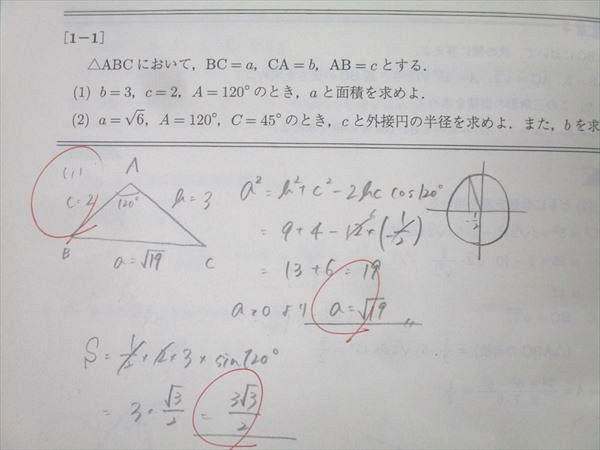 [1-1]
△ABCにおいて，BC=a，CA=b，AB=cとする．
(1) b=3，c=2，A=120°のとき，aと面積を求めよ．
(2) a=√6，A=120°，C=45°のとき，cと外接円の半径を求めよ．また，bを求
(1)
A
c=2
120°
b=3
B
a=√19
C
a²=b²+c²-2bc cos120°
=9+4-12×(-1/2)
=13+6=19
a>0より a=√19
-1/2
S=1/2×2×3×sin120°
=3·√3/2=3√3/2